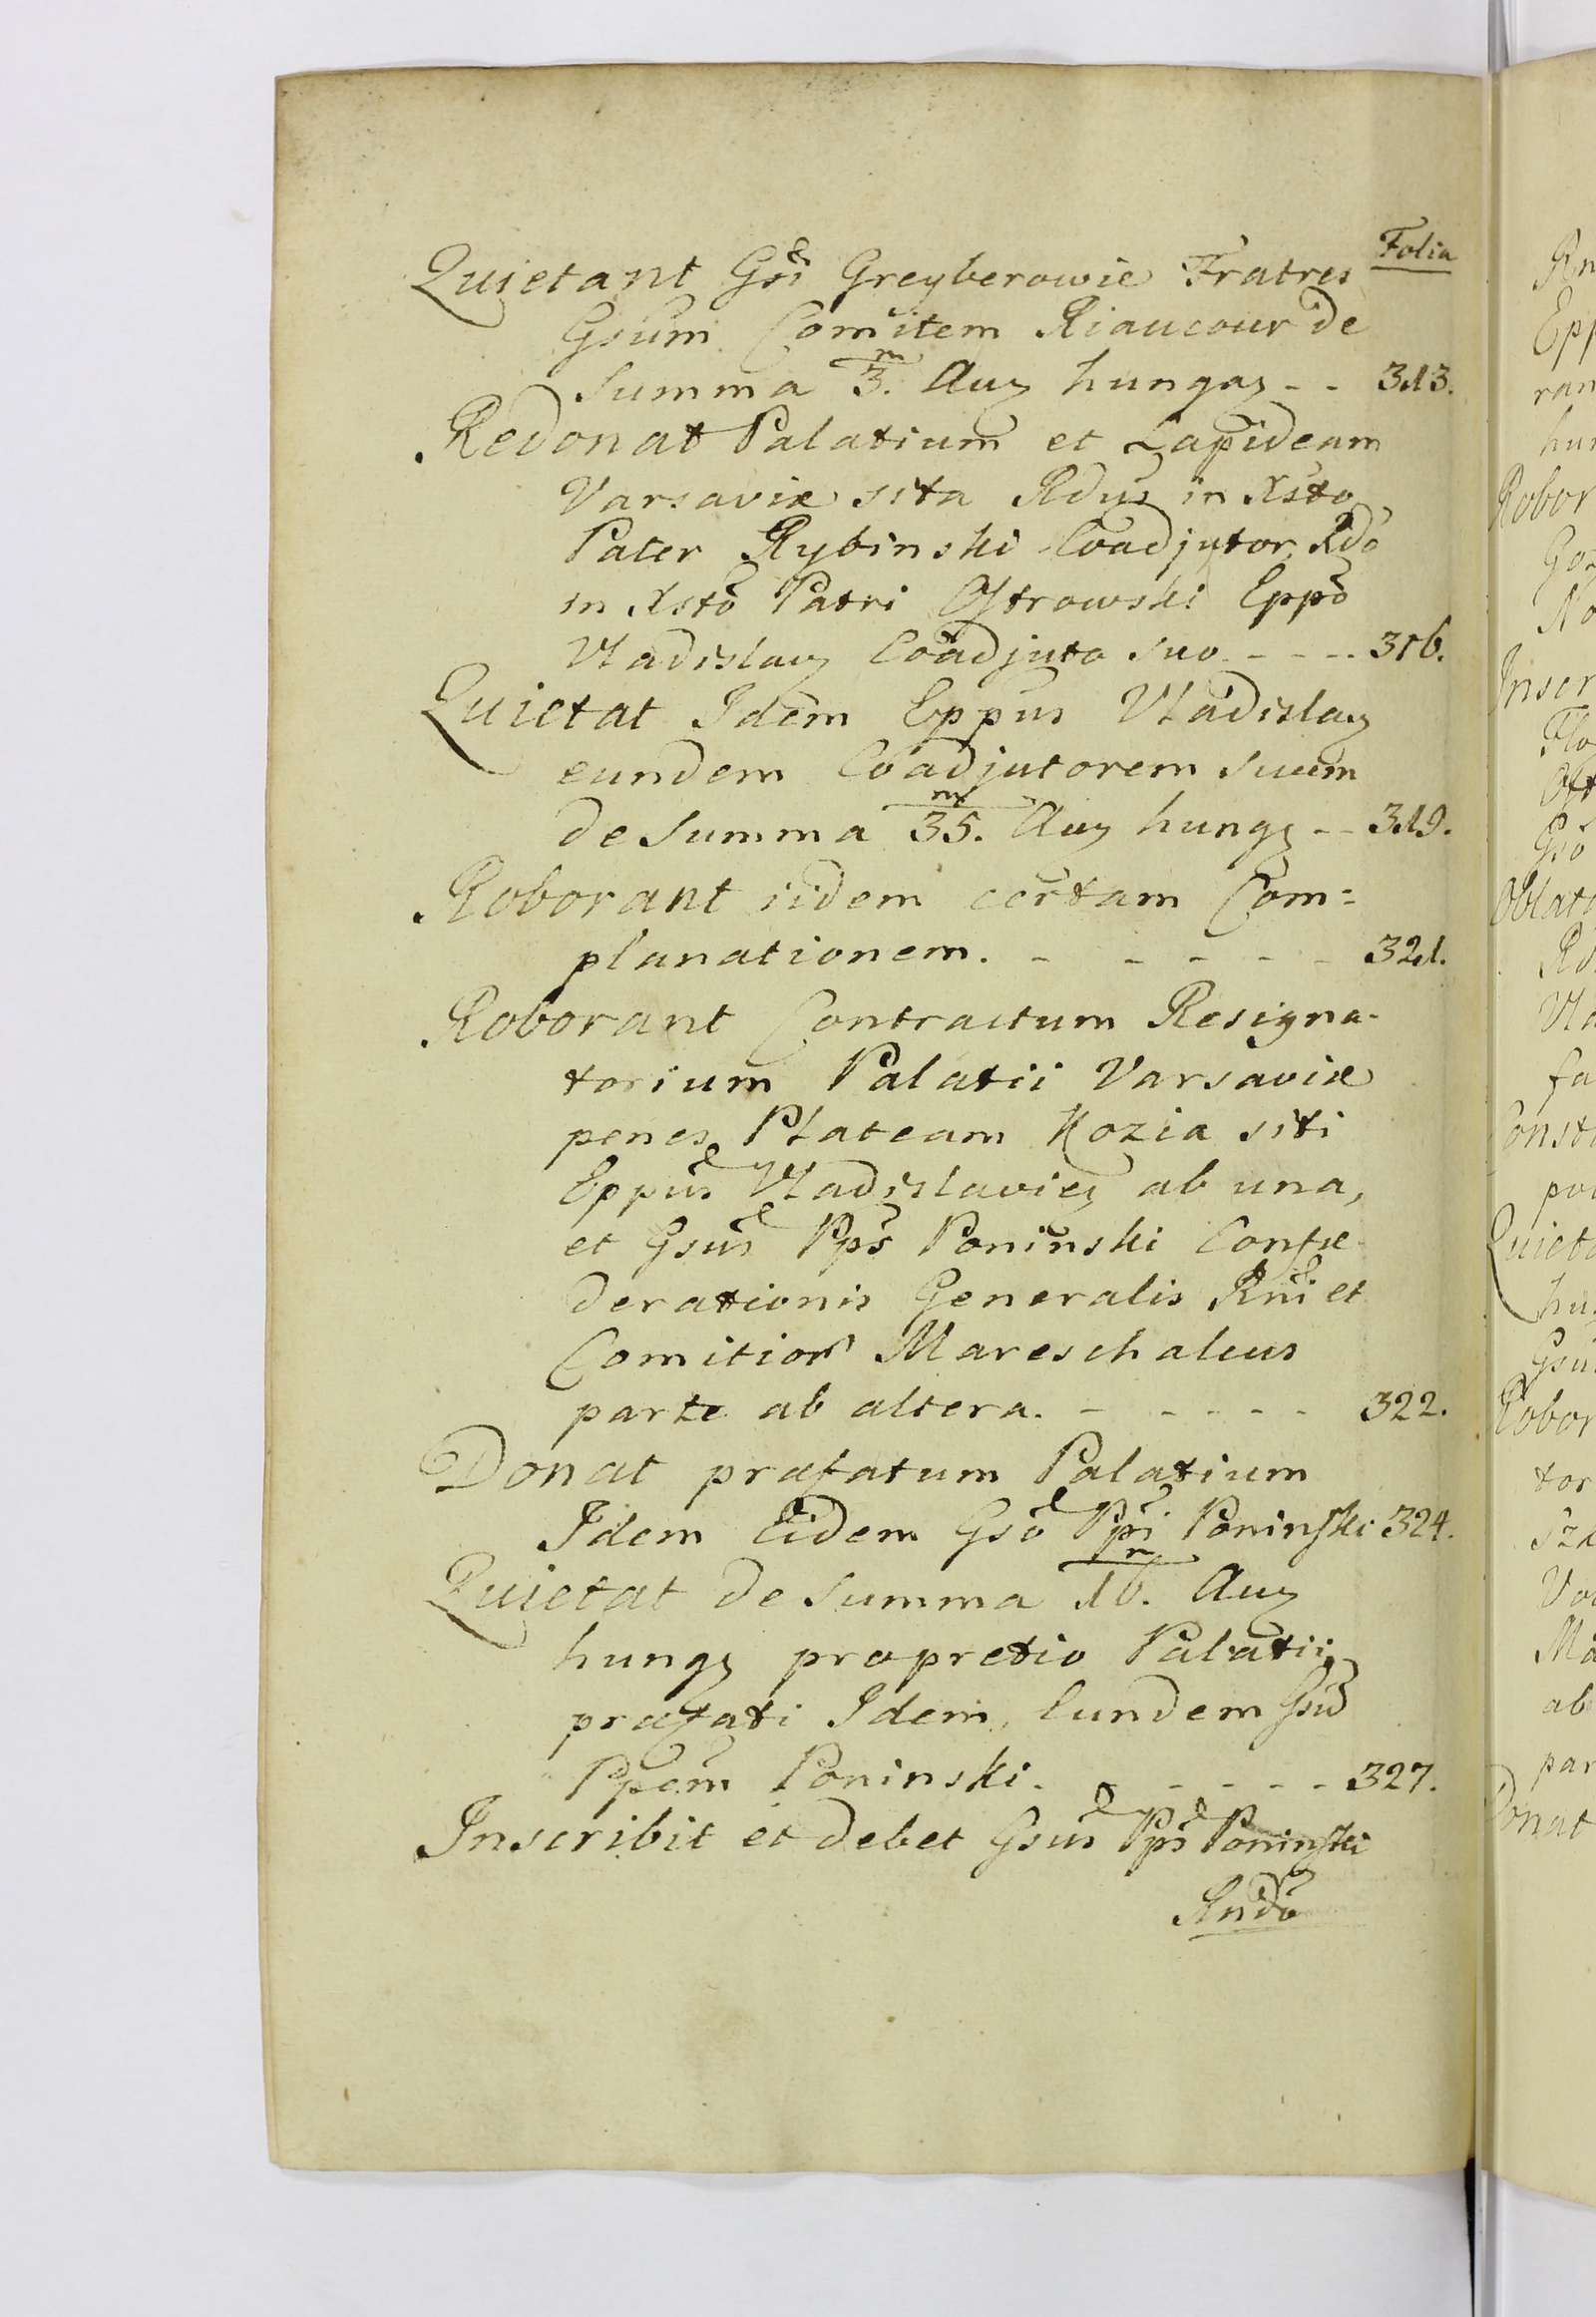 Folia
Quietant Gsi Greyberowie Fratres
Gsum Comitem Riaucour de
Summa 3.m Auꝫ hungaꝫ - - 313.
Redonat Palatium et Lapideam
Varsaviæ sita Rdus in Xsto
Pater Rybinski Coadjutor Rdo
in Xsto Patri Ostrowski Eppo
Vladislavꝫ Coadjuto suo - - - - 316.
Quietat Idem Eppus Vladislaꝫ
eundem Coadjutorem suum
de Summa 35.m Auꝫ hungꝫ - - 319.
Roborant iidem certam Com=
planationem. - - - - - 321.
Roborant Contractum Resigna-
torium Palatii Varsaviæ
penes Plateam Kozia siti
Eppus Vladislavieꝫ ab una,
et Gsus Pps Poninski Confæ
derationis Generalis Rni et
Comitior Mareschalcus
parte ab altera. - - - - - 322.
Donat præfatum Palatium
Idem Eidem Gso Ppi Poninski 324.
Quietat de Summa 16.m Auꝫ
hungꝫ pro pretio Palatii
præfati Idem, Eundem Gsu
Ppem Poninski. - - - - - 327.
Inscribit et debet Gsus Pps Poninski
Rndo
Rn
Epp
ran
hun
Robor
Goz
No
Inscr
Flo
Ost
Gso
Oblata
Rd
Vla
fa
Consti
po
Quieta
hu
Gsu
Robor
tor
sza
Vo
Ma
ab
par
Donat